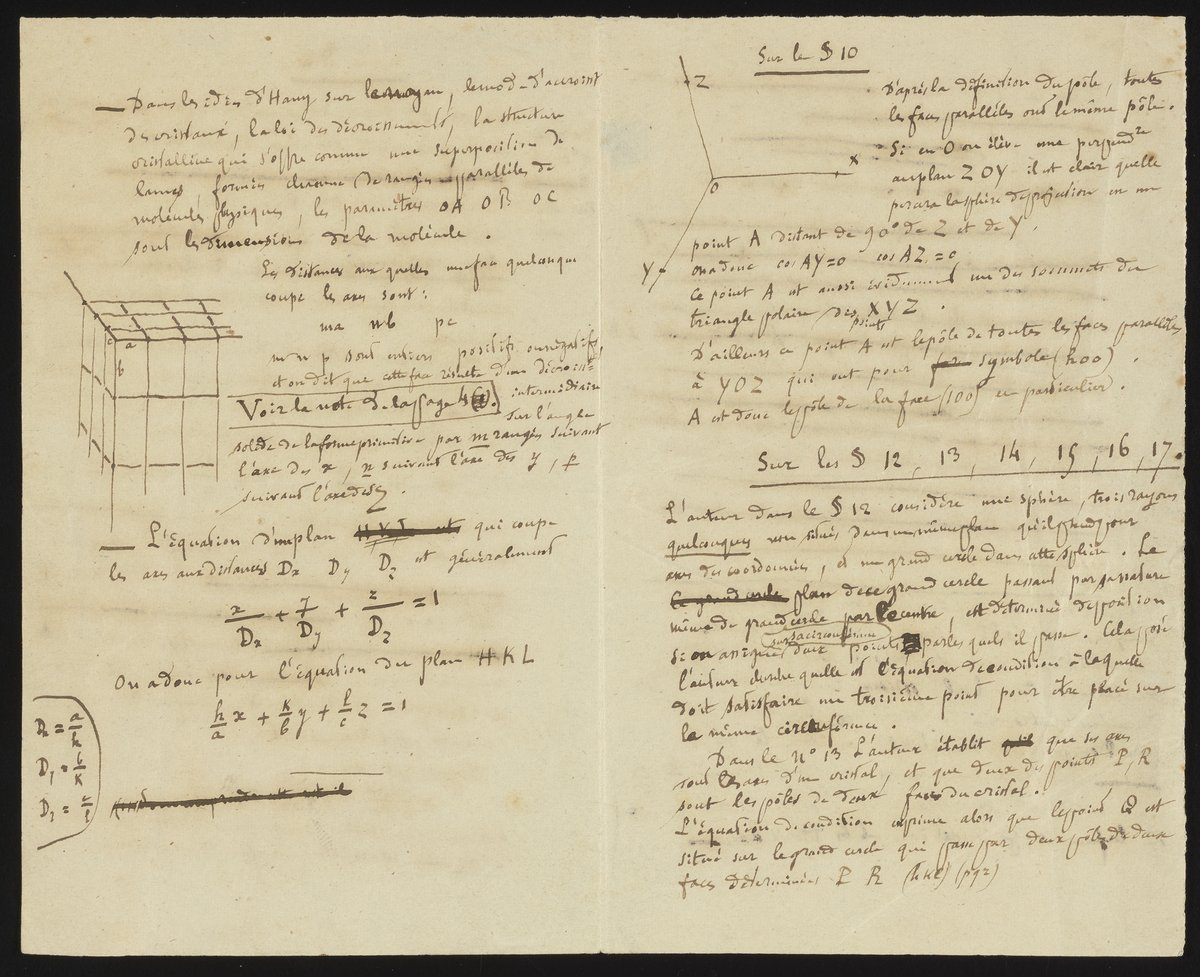 — Dans les idées d'Hauy sur le noyau, le mode d'accroisst
des cristaux, la loi des décroissements, la structure
cristalline qui s'offre comme une superposition de
lames formées chacune de rangées parallèles de
molécules physiques, les paramètres OA OB OC
sont les dimensions de la molécule.
Les distances aux quelles une face quelconque
coupe les axes sont:
ma nb pc
m n p sont entiers positifs ou négatifs
et on dit que cette face résulte d'un décroisst
Voir la note de la page 4 intermédiaire
sur l'angle
solide de la forme primitive par m rangées suivant
l'axe des x, n suivant l'axe des y, p
suivant l'axe des z.
c a
b
— L'équation d'un plan HKL qui coupe
les axes aux distances Dx Dy Dz est généralement
x/Dx + y/Dy + z/Dz = 1
On a donc pour l'équation du plan HKL
h/a x + k/b y + l/c z = 1
Dx = a/h
Dy = b/k
Dz = c/l
Sur le § 10
Z
X
O
Y
D'après la définition du pôle, toutes
les faces parallèles ont le même pôle.
Si en O on élève une perpendre
au plan ZOY il est clair quelle
percera la sphère de projection en un
point A distant de 90° de Z et de Y.
on a donc cos AY=0 cos AZ=0
Ce point A est aussi évidemment un des sommets du
triangle polaire des points XYZ.
D'ailleurs ce point A est le pôle de toutes les faces parallèles
à YOZ qui ont pour symbole (h00).
A est donc le pôle de la face (100) en particulier.
Sur les § 12, 13, 14, 15, 16, 17.
L'auteur dans le § 12 considère une sphère, trois rayons
quelconques non situés dans un même plan qu'il prend pour
axes des coordonnées, et un grand cercle dans cette sphère. Le
Ce grand cercle plan de ce grand cercle passant par sa nature
même de grand cercle par le centre, est déterminé de position
si on assigne sur sa circonférence deux points par lesquels il passe. Cela posé
l'auteur cherche quelle est l'équation de condition à laquelle
doit satisfaire un troisième point pour être placé sur
la même circonférence.
Dans le N° 13 L'auteur établit qu'il que ses axes
sont les axes d'un cristal, et que deux des points P, R
sont les pôles de deux faces du cristal.
L'équation de condition exprime alors que le point Q est
situé sur le grand cercle qui passe par deux pôles de deux
faces déterminées P R (hkl) (pqr)